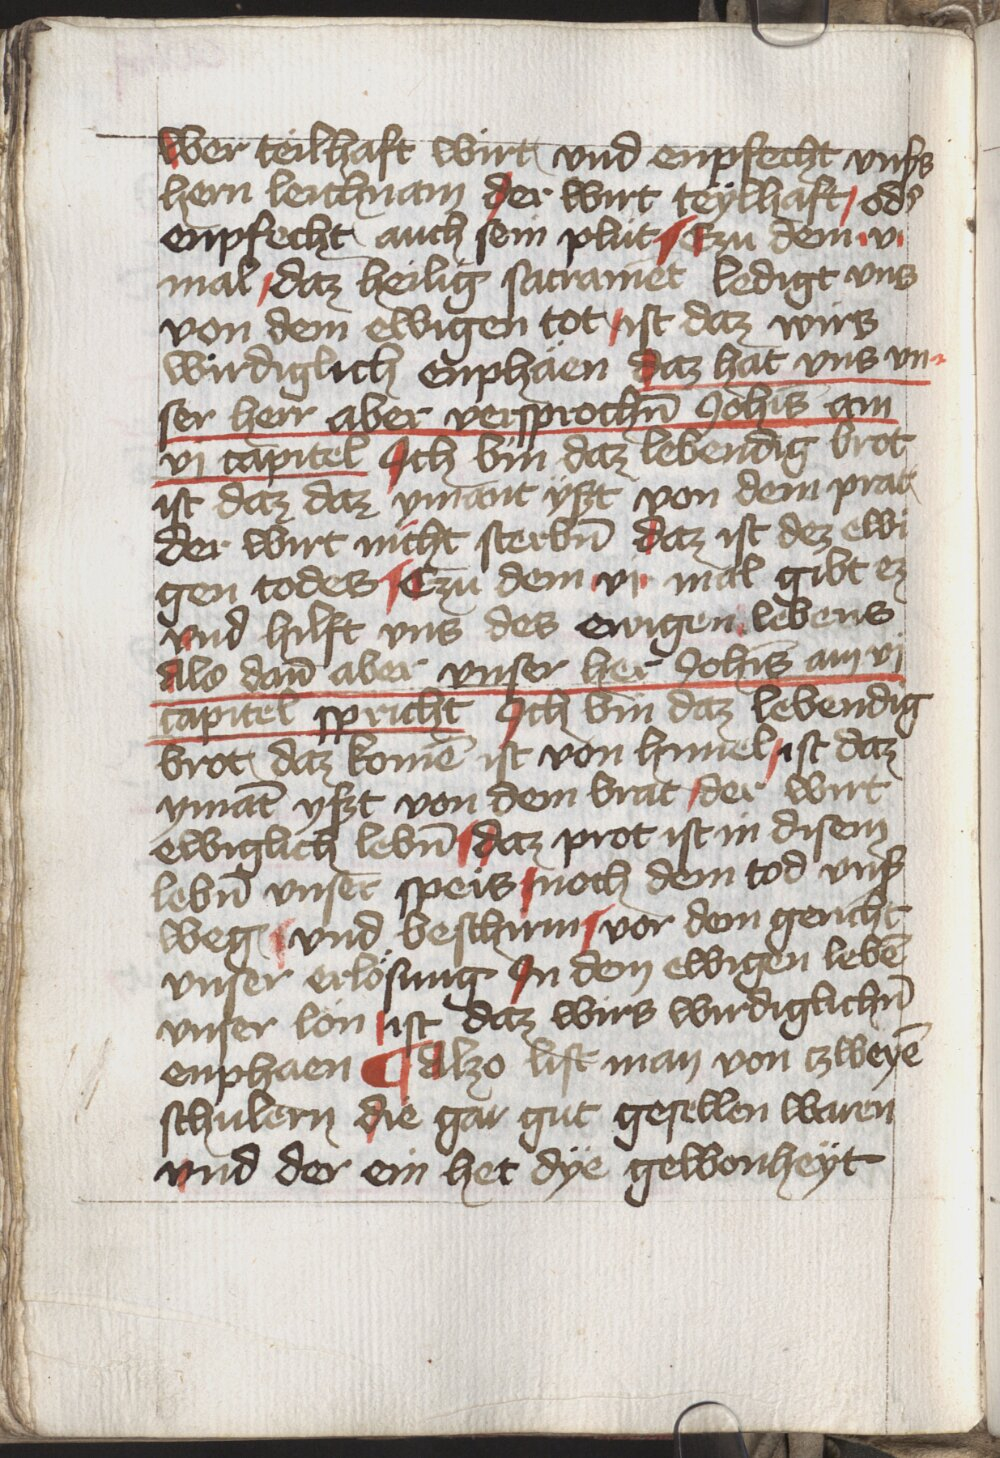 wer teilhaft wirt vnd enpfecht vnsßs
hern leichnam der wirt teylhaft / ods
enpfecht auch sein plut Czu dem · v ·
mal / daz heilig sacramēt ledigt vns
von dem ewigen tot / ist daz wirs
wirdiglich enphaen daz hat vns vn-
ser herr aber versprochn̄ Johīs am
vj capitel Ich bin daz lebendig brot
ist daz daz ymant yßt von dem prat
der wirt nicht sterbn̄ daz ist dez ewi
gen todes Czu dem · vj · mal gibt ez
vnd hilft vns des ewigen lebens
Als dan̄ aber vnser her Johīs am vj
capitel spricht Ich bin daz lebendig
brot daz komē ist von himel / ist daz
ymāt yßt von dem brat / der wirt
ewiglich lebn̄ daz prot ist in disem
lebn̄ vnser speis / noch dem tod vnß
weg / vnd beschirm / vor dem gericht
vnser erlösung In dem ewigen lebē
vnser lon / ist daz wirs wirdiglichn̄
enphaen ¶ Alzo list man von czweyē
schulern die gar gut gesellen waren
vnd der ein het dye gewonheyt